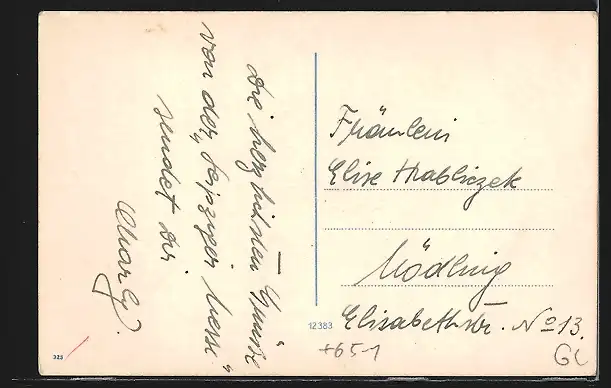 Die herzlichsten Grüsse
von der „Leipziger Messe“
sendet Dir
Charly.
Fräulein
Elise Hrabliczek
Mödling
Elisabethstr. No 13.
12383
+651
GL
323